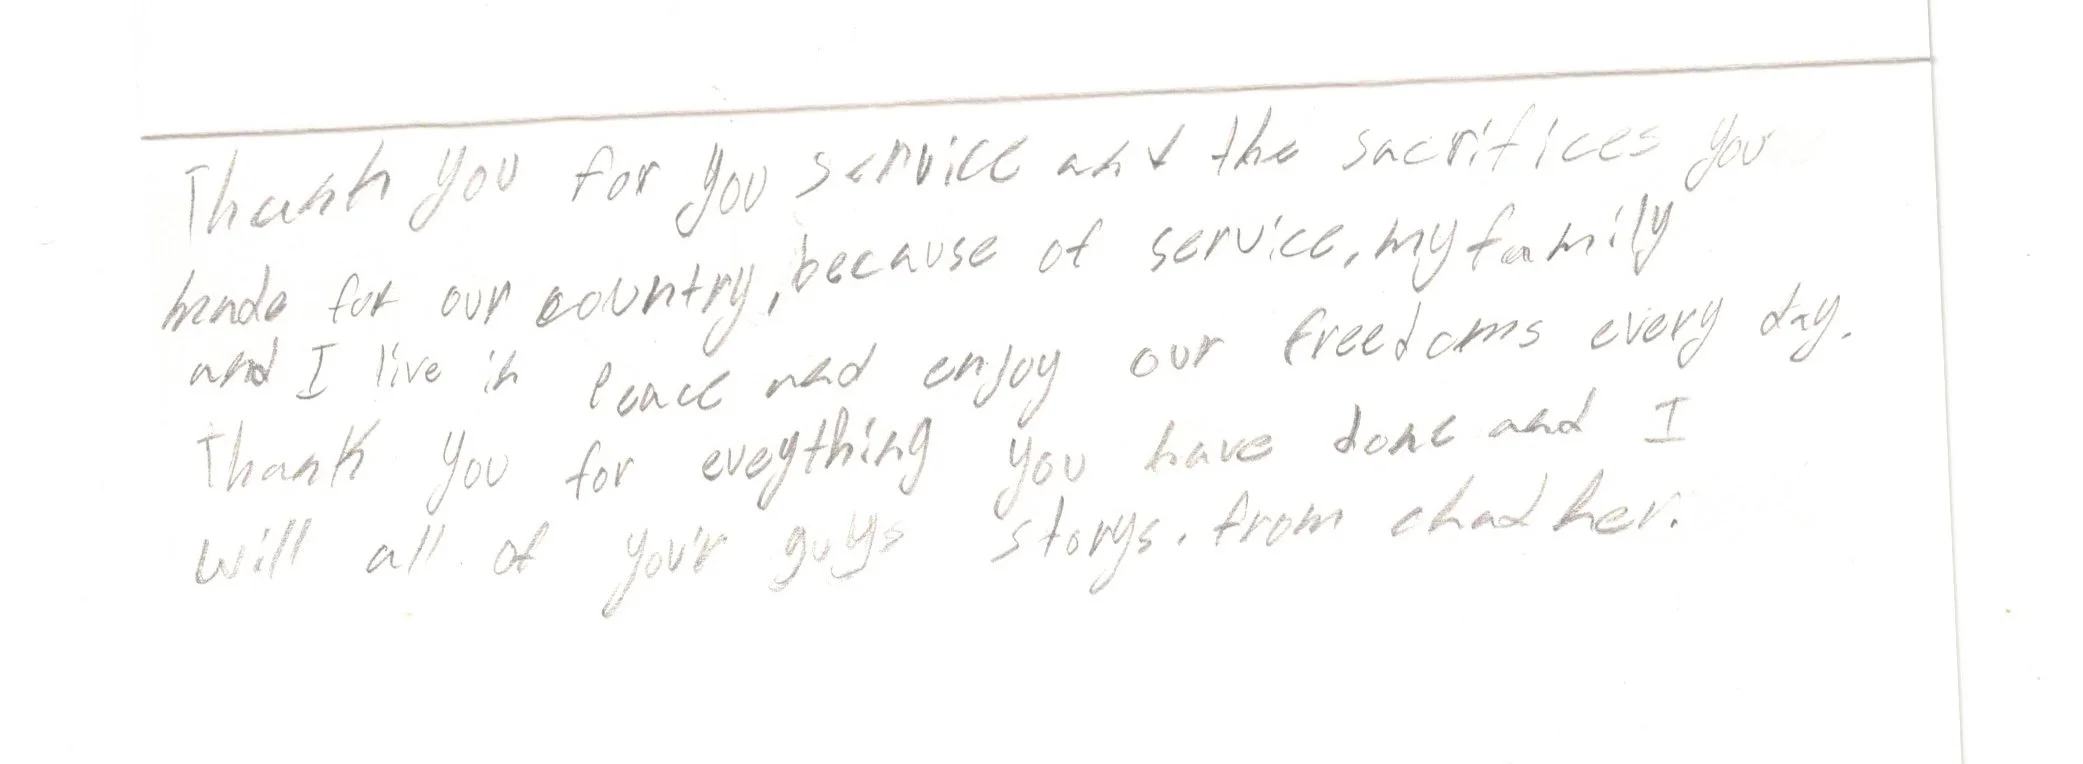 Thank you for you service and the sacrifices you
made for our country, because of service, my family
and I live in peace and enjoy our freedoms every day.
Thank you for eveything you have done and I
will all of your guys storys. from chad her.